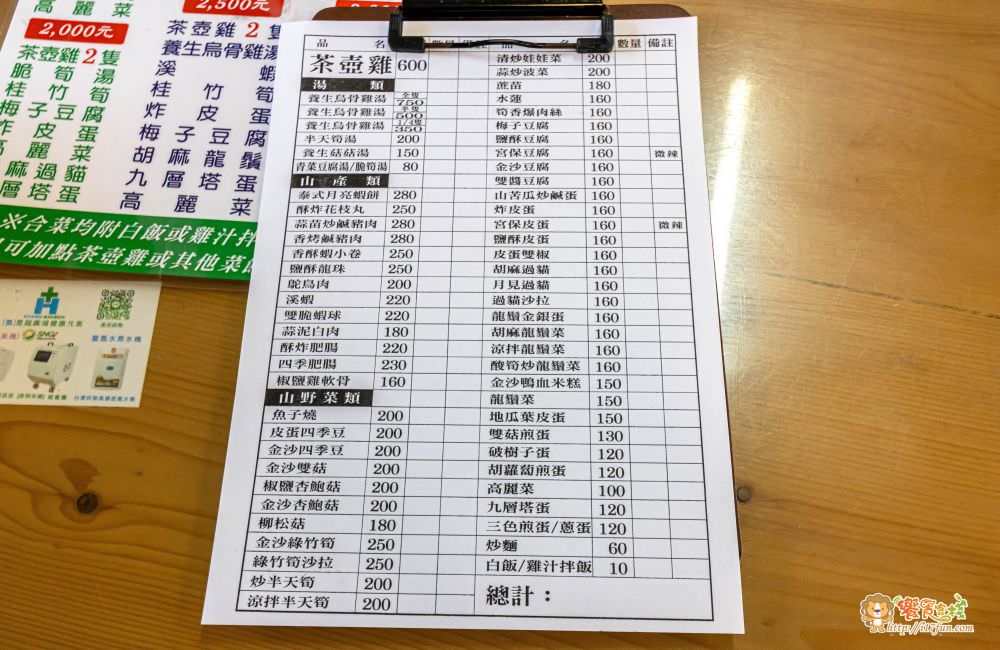 高麗菜
2,000元
茶壺雞2隻
脆筍湯
桂竹筍
梅子豆腐
炸皮蛋
高麗菜
麻過貓
層塔蛋
2,500元
茶壺雞2隻
養生烏骨雞湯
溪蝦
桂竹筍
炸皮蛋
梅子豆腐
胡麻龍鬚
九層塔蛋
高麗菜
※合菜均附白飯或雞汁拌
可加點茶壺雞或其他菜
品名
茶壺雞 600
湯類
養生烏骨雞湯 全隻 750
養生烏骨雞湯 半隻 500
養生烏骨雞湯 1/4隻 350
半天筍湯 200
養生菇菇湯 150
青菜豆腐湯/脆筍湯 80
山產類
泰式月亮蝦餅 280
酥炸花枝丸 250
蒜苗炒鹹豬肉 280
香烤鹹豬肉 280
香酥蝦小卷 250
鹽酥龍珠 250
鴕鳥肉 200
溪蝦 220
雙脆蝦球 220
蒜泥白肉 180
酥炸肥腸 220
四季肥腸 230
椒鹽雞軟骨 160
山野菜類
魚子燒 200
皮蛋四季豆 200
金沙四季豆 200
金沙雙菇 200
椒鹽杏鮑菇 200
金沙杏鮑菇 200
柳松菇 180
金沙綠竹筍 250
綠竹筍沙拉 250
炒半天筍 200
涼拌半天筍 200
品名 數量 備註
清炒娃娃菜 200
蒜炒波菜 200
蔗苗 180
水蓮 160
筍香爆肉絲 160
梅子豆腐 160
鹽酥豆腐 160
宮保豆腐 160 微辣
金沙豆腐 160
雙醬豆腐 160
山苦瓜炒鹹蛋 160
炸皮蛋 160
宮保皮蛋 160 微辣
鹽酥皮蛋 160
皮蛋雙椒 160
胡麻過貓 160
月見過貓 160
過貓沙拉 160
龍鬚金銀蛋 160
胡麻龍鬚菜 160
涼拌龍鬚菜 160
酸筍炒龍鬚菜 160
金沙鴨血米糕 150
龍鬚菜 150
地瓜葉皮蛋 150
雙菇煎蛋 130
破樹子蛋 120
胡蘿蔔煎蛋 120
高麗菜 100
九層塔蛋 120
三色煎蛋/蔥蛋 120
炒麵 60
白飯/雞汁拌飯 10
總計：
http://i17fun.com/